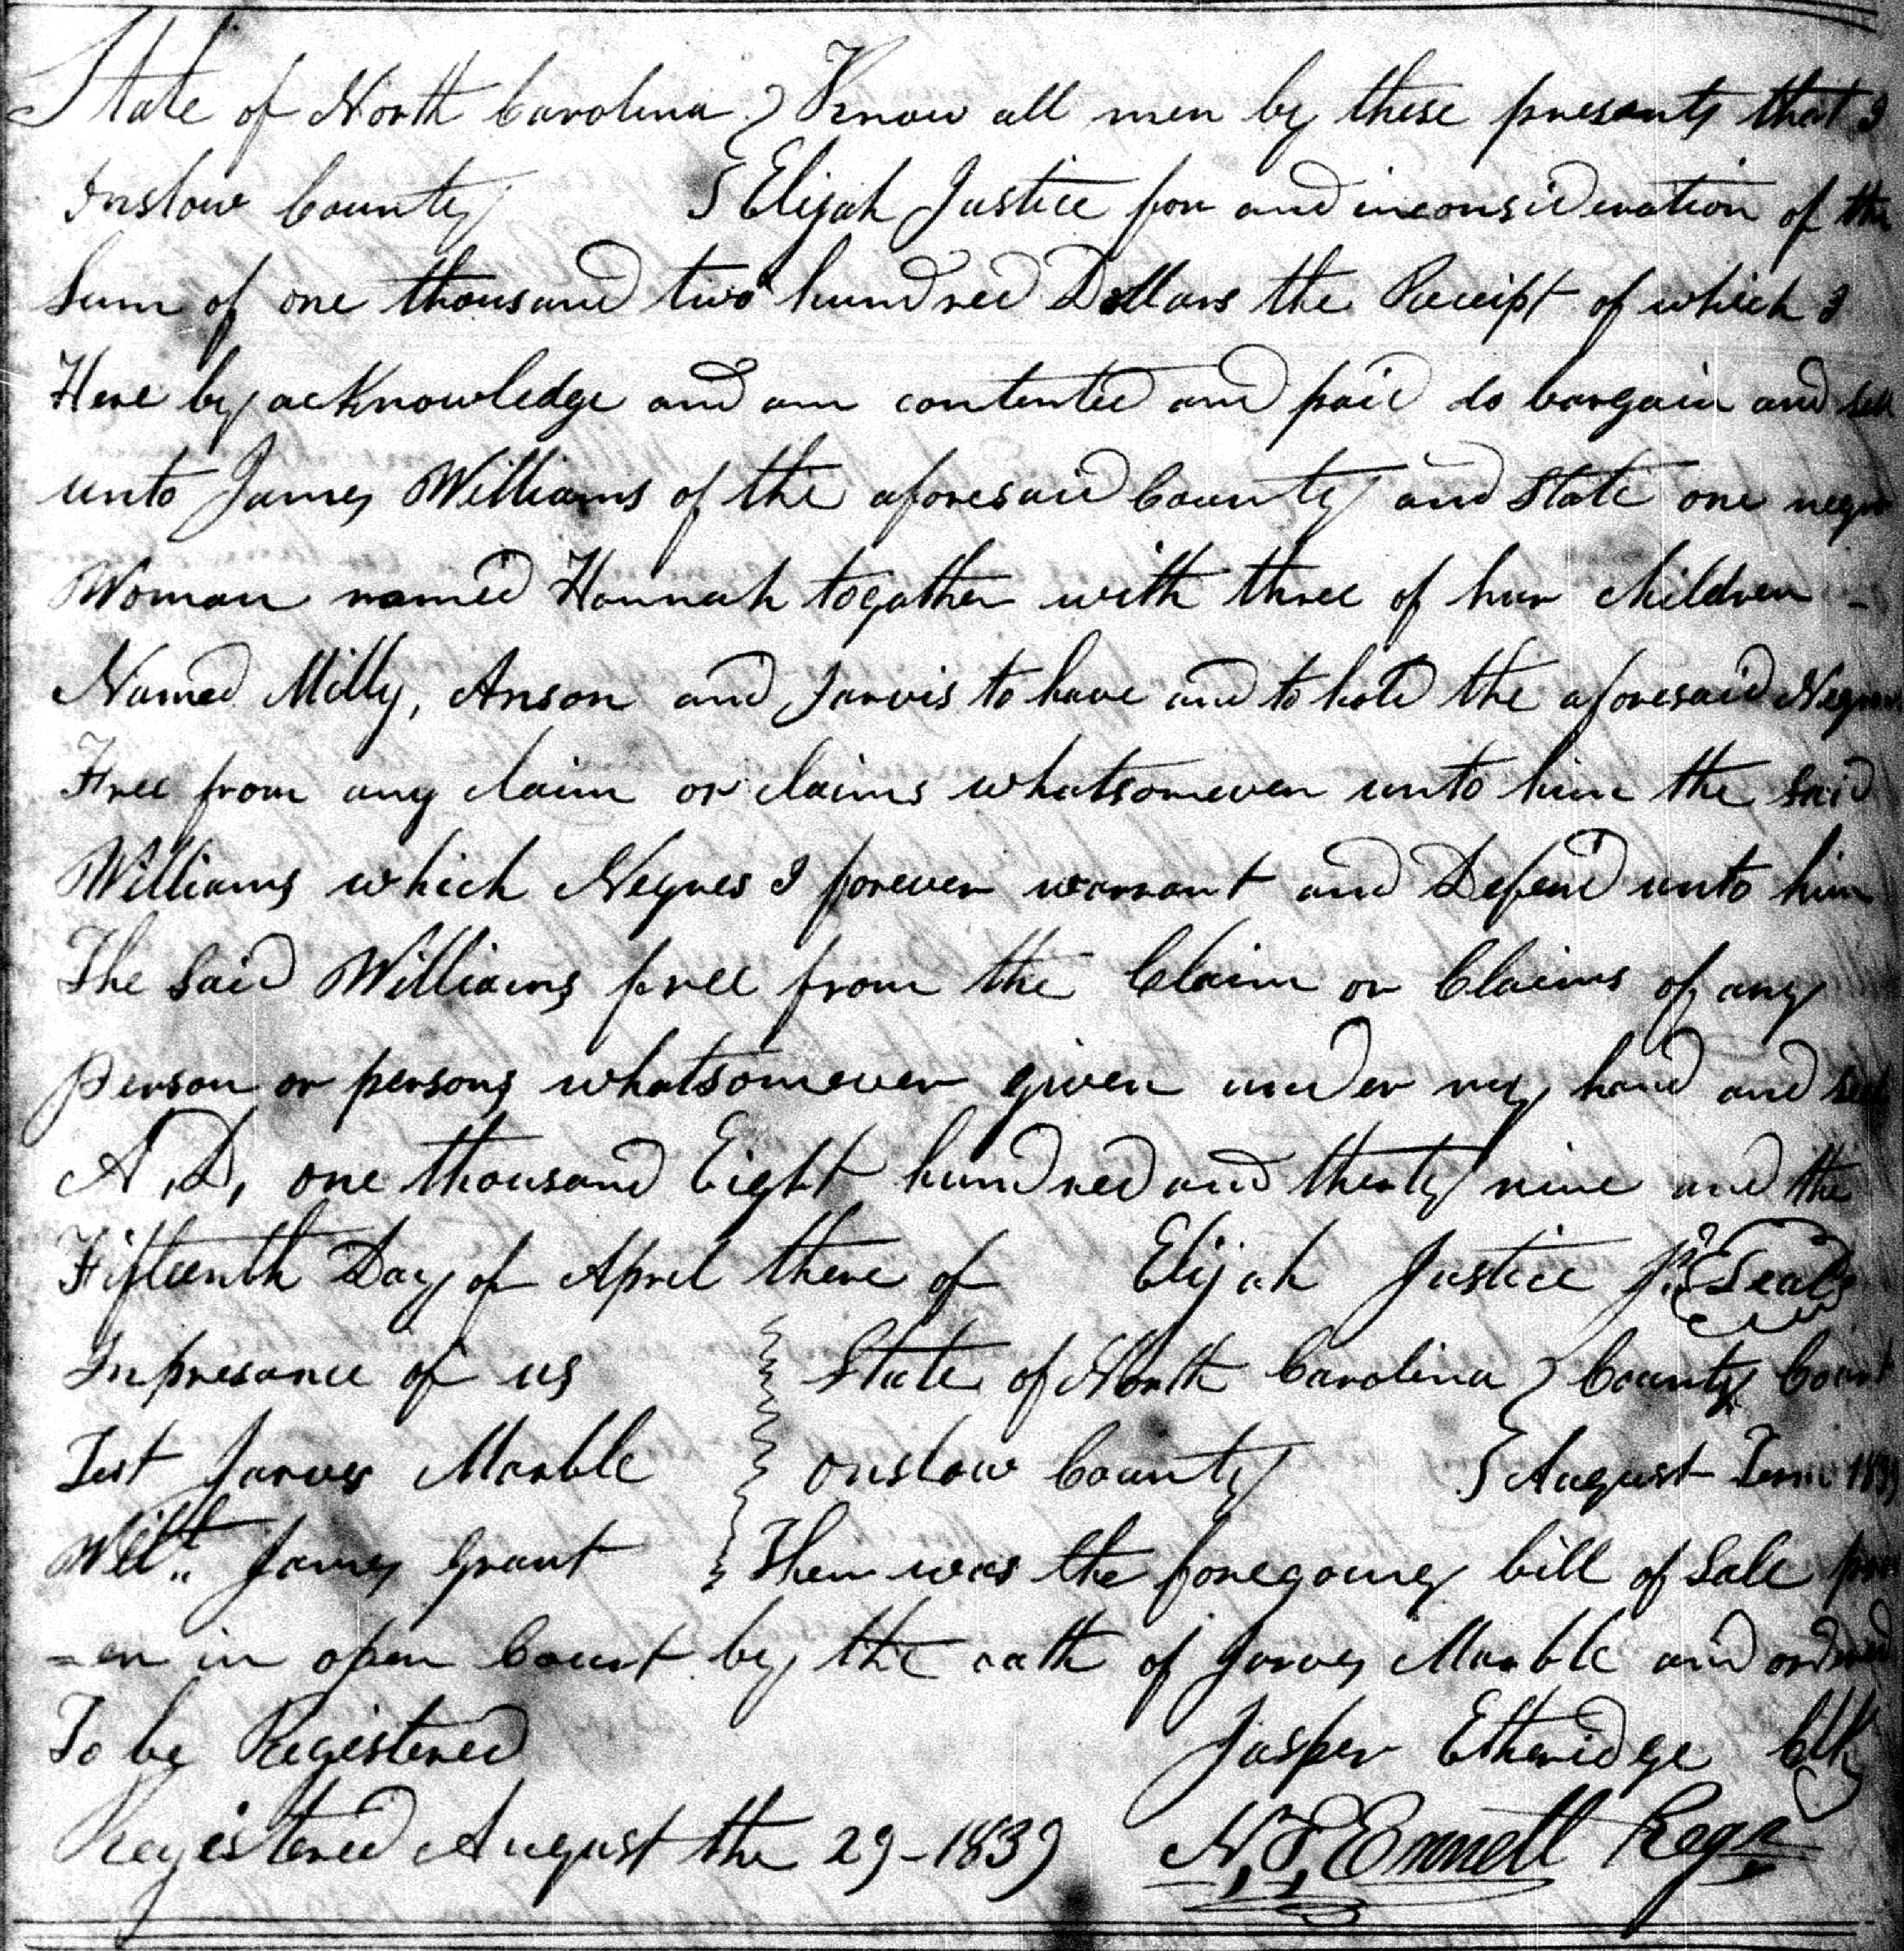 State of North Carolina } Know all men by these presents that I
Onslow County } Elijah Justice for and inconsideration of the
Sum of one thousand two hundred Dollars the Receipt of which I
Here by acKnowledge and am contented and paid do bargain and sell
unto James Williams of the aforesaid County and State one negro
Woman named Hannah togather with three of hur children -
Named Milly, Anson and Jarvis to have and to hold the aforesaid
Free from any claim or claims whatsomever unto him the said
Williams which Negroes I forever warrant and Defend unto him
The Said Williams free from the Claim or Claims of any
Person or persons whatsomever given under my hand and seal
A,D, one thousand Eight hundred and thirty nine and the
Fifteenth Day of April there of Elijah Justice Jr Seal
In presance of us } State of North Carolina } County Court
Test Jarves Marble } Onslow County } August Term 1839
James Grant } Then was the foregoing bill of Sale
=en in open Court by the oath of Jarves Marble and ordered
To be Registered Jasper Etheridge Clk
Registered August the 29 - 1839 Regr